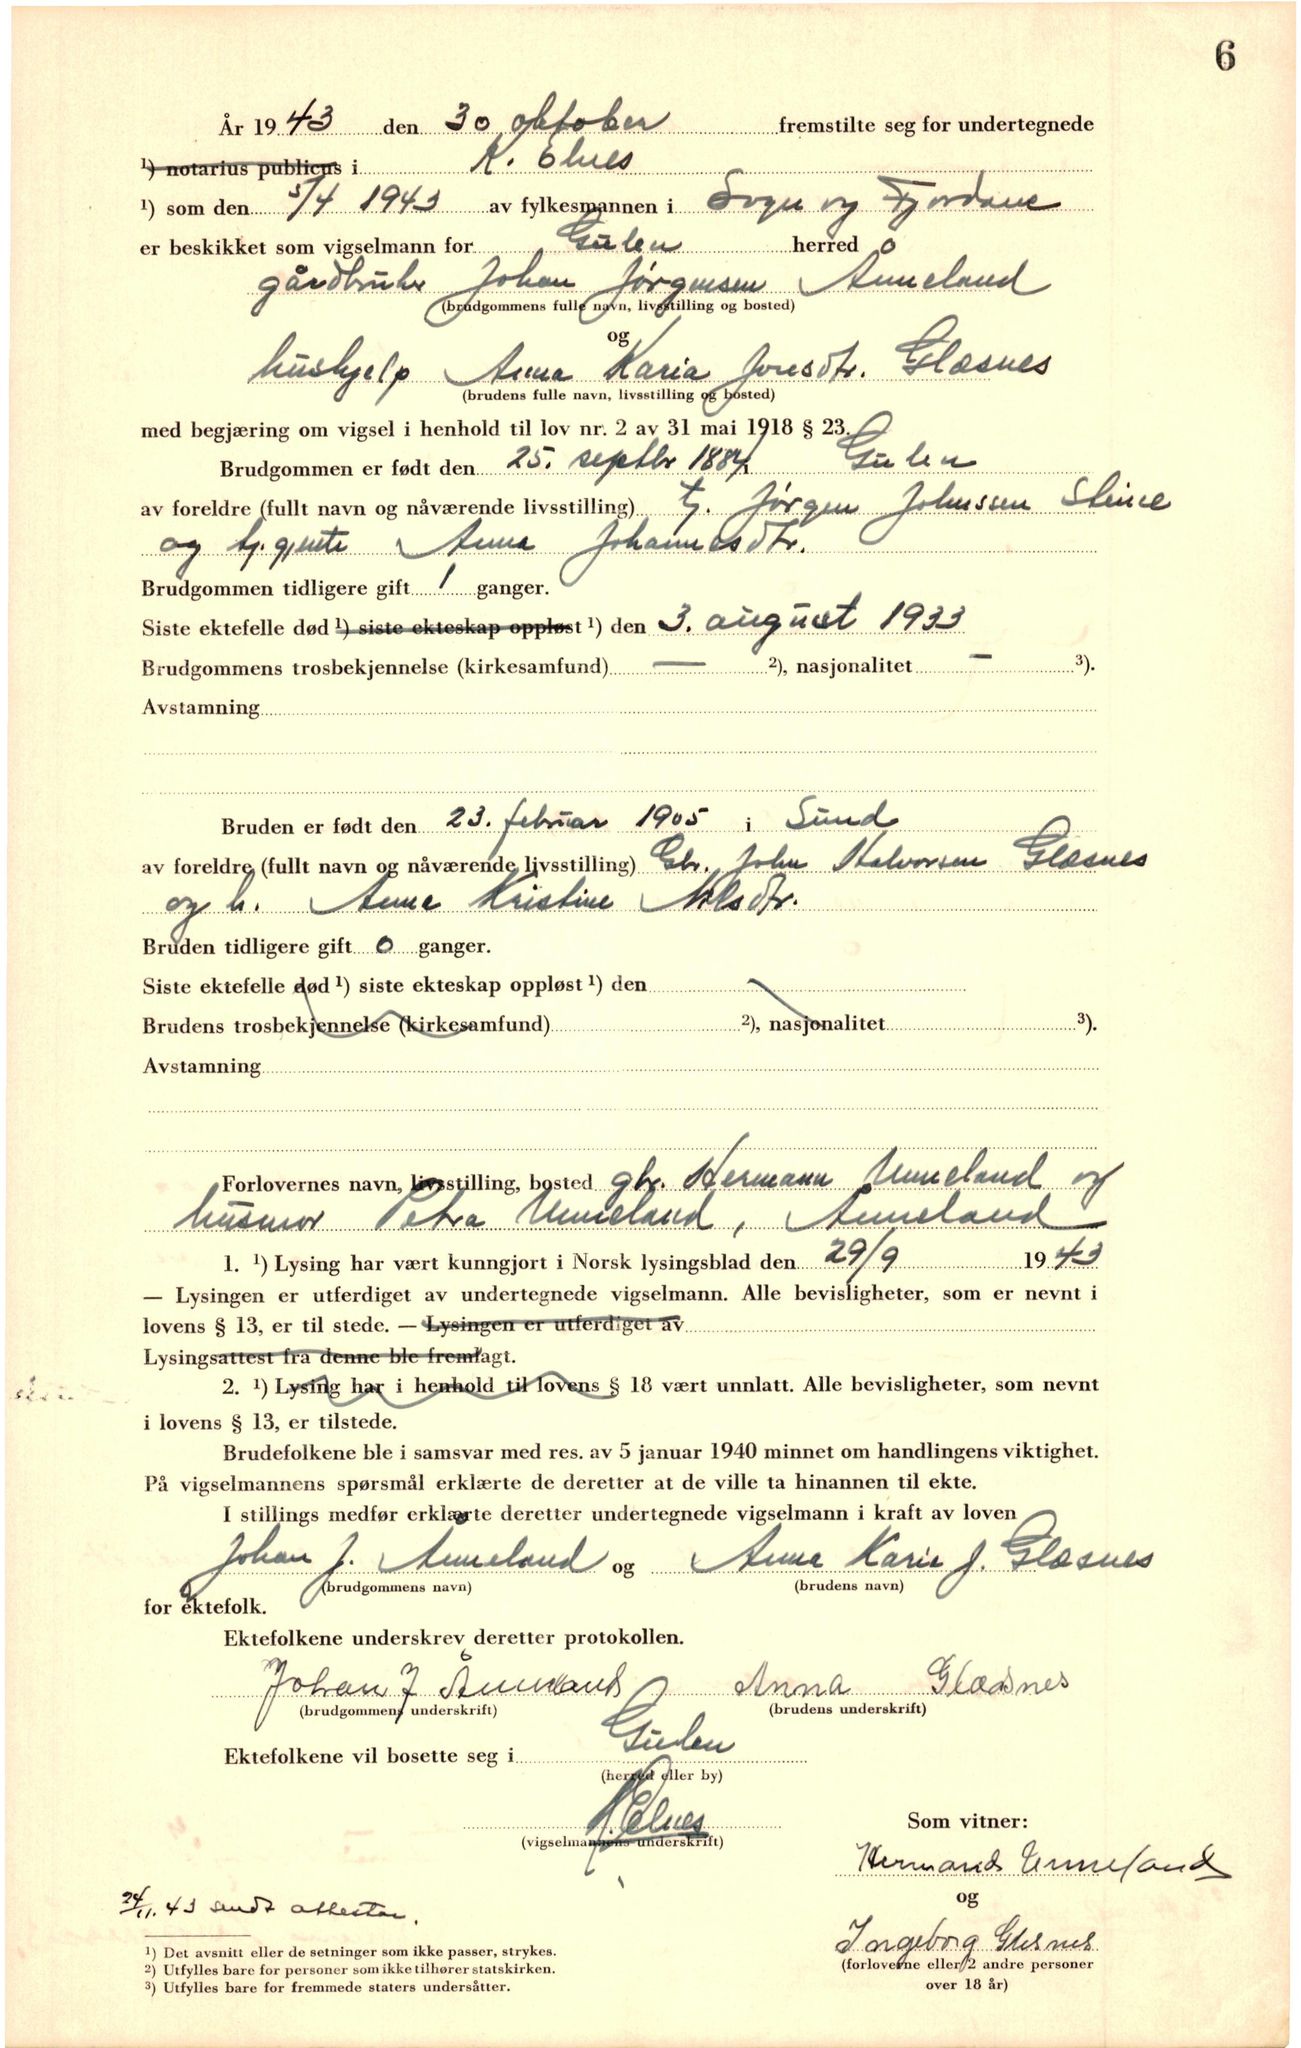 6
År 1943 den 30 oktober fremstilte seg for undertegnede
¹) notarius publicus i K. Elnes
¹) som den 5/4 1943 av fylkesmannen i Sogn og Fjordane
er beskikket som vigselmann for Gulen herred
gårdbruker Johan Jørgensen Ånneland
(brudgommens fulle navn, livsstilling og bosted)
og
hushjelp Anna Karia Jonsdtr. Glæsnes
(brudens fulle navn, livsstilling og bosted)
med begjæring om vigsel i henhold til lov nr. 2 av 31 mai 1918 § 23.
Brudgommen er født den 25. septbr 1884 i Gulen
av foreldre (fullt navn og nåværende livsstilling) tj. Jørgen Johnssen Steine
og tj.gjente Anna Johannesdtr.
Brudgommen tidligere gift 1 ganger.
Siste ektefelle død ¹) siste ekteskap oppløst ¹) den 3. august 1933
Brudgommens trosbekjennelse (kirkesamfund) — ²), nasjonalitet — ³).
Avstamning
Bruden er født den 23. februar 1905 i Sund
av foreldre (fullt navn og nåværende livsstilling) Gbr. John Halvorsen Glæsnes
og h. Anna Kristine Nilsdtr.
Bruden tidligere gift 0 ganger.
Siste ektefelle død ¹) siste ekteskap oppløst ¹) den
Brudens trosbekjennelse (kirkesamfund) ²), nasjonalitet ³).
Avstamning
Forlovernes navn, livsstilling, bosted gbr. Hermann Unneland og
husmor Petra Unneland, Ånneland
1. ¹) Lysing har vært kunngjort i Norsk lysingsblad den 29/9 1943
— Lysingen er utferdiget av undertegnede vigselmann. Alle bevisligheter, som er nevnt i
lovens § 13, er til stede. — Lysingen er utferdiget av
Lysingsattest fra denne ble fremlagt.
2. ¹) Lysing har i henhold til lovens § 18 vært unnlatt. Alle bevisligheter, som nevnt
i lovens § 13, er tilstede.
Brudefolkene ble i samsvar med res. av 5 januar 1940 minnet om handlingens viktighet.
På vigselmannens spørsmål erklærte de deretter at de ville ta hinannen til ekte.
I stillings medfør erklærte deretter undertegnede vigselmann i kraft av loven
Johan J. Ånneland og Anna Karia J. Glæsnes
(brudgommens navn) (brudens navn)
for ektefolk.
Ektefolkene underskrev deretter protokollen.
Johan J Ånneland Anna Glæsnes
(brudgommens underskrift) (brudens underskrift)
Ektefolkene vil bosette seg i Gulen
(herred eller by)
K. Elnes
(vigselmannens underskrift)
Som vitner:
Hermand Unneland
og
Ingeborg Glesnes
(forloverne eller 2 andre personer
over 18 år)
24/11.43 sendt attestar.
¹) Det avsnitt eller de setninger som ikke passer, strykes.
²) Utfylles bare for personer som ikke tilhører statskirken.
³) Utfylles bare for fremmede staters undersåtter.